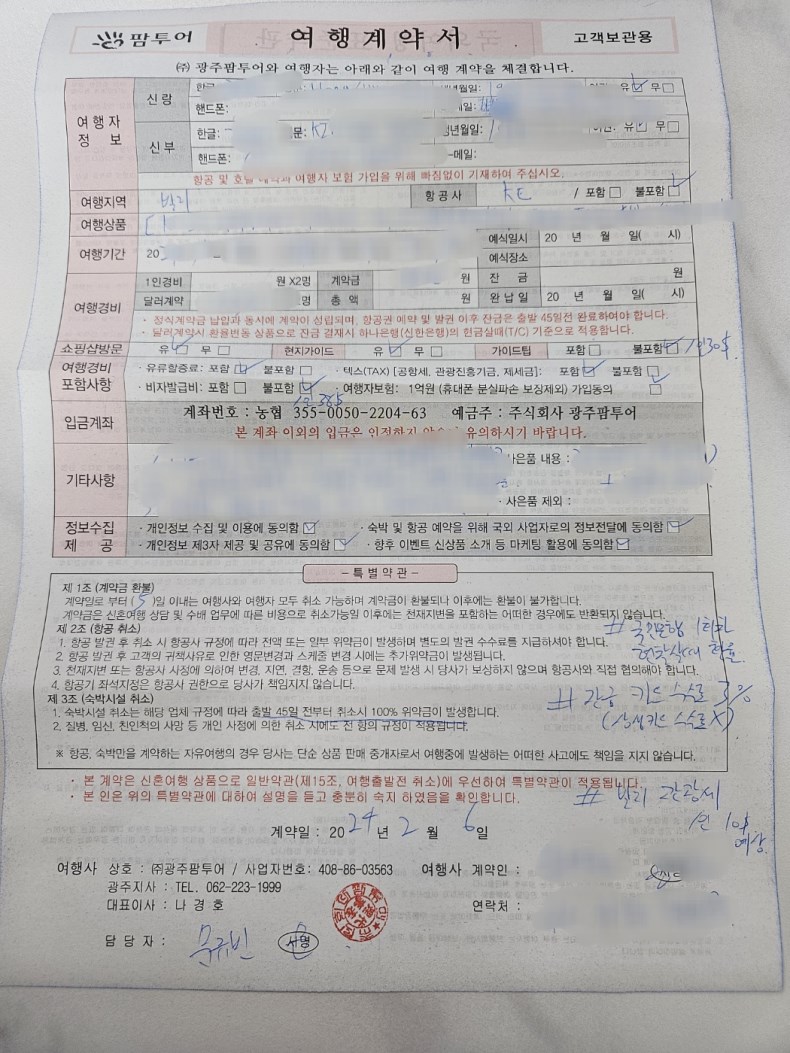 팜투어 여행계약서 고객보관용
㈜ 광주팜투어와 여행자는 아래와 같이 여행 계약을 체결합니다.
여행자 정 보
신랑
유 무
핸드폰:
신부 한글: 유 무
핸드폰:
항공 및 호텔 여행자 보험 가입을 위해 빠짐없이 기재하여 주십시오.
여행지역 발리 항공사 KE / 포함 불포함
여행상품
여행기간 20 예식일시 20 년 월 일( 시)
예식장소
여행경비
1인경비 원 X2명 계약금 원 잔 금 원
달러계약 명 총 액 원 완납일 20 년 월 일( 시)
· 정식계약금 납입과 동시에 계약이 성립되며, 항공권 예약 및 발권 이후 잔금은 출발 45일전 완료하여야 합니다.
· 달러계약시 환율변동 상품으로 잔금 결재시 하나은행(신한은행)의 현금살때(T/C) 기준으로 적용합니다.
쇼핑샵방문 유 무 현지가이드 유 무 가이드팁 포함 불포함 1인30$
여행경비 포함사항
· 유류할증료: 포함 불포함 · 텍스(TAX) [공항세, 관광진흥기금, 제세금]: 포함 불포함
· 비자발급비: 포함 불포함 · 여행자보험: 1억원 (휴대폰 분실파손 보장제외) 가입동의
입금계좌 계좌번호 : 농협 355-0050-2204-63 예금주 : 주식회사 광주팜투어
본 계좌 이외의 입금은 유의하시기 바랍니다.
기타사항 사은품 내용 :
· 사은품 제외 :
정보수집 제 공
· 개인정보 수집 및 이용에 동의함 · 숙박 및 항공 예약을 위해 국외 사업자로의 정보전달에 동의함
· 개인정보 제3자 제공 및 공유에 동의함 · 향후 이벤트 신상품 소개 등 마케팅 활용에 동의함
- 특별약관 -
제 1조 (계약금 환불)
계약일로 부터 (5)일 이내는 여행사와 여행자 모두 취소 가능하며 계약금이 환불되나 이후에는 환불이 불가합니다.
계약금은 신혼여행 상담 및 수배 업무에 따른 비용으로 취소가능일 이후에는 천재지변을 포함하는 어떠한 경우에도 반환되지 않습니다.
제 2조 (항공 취소)
1. 항공 발권 후 취소 시 항공사 규정에 따라 전액 또는 일부 위약금이 발생하며 별도의 발권 수수료를 지급하셔야 합니다.
2. 항공 발권 후 고객의 귀책사유로 인한 영문변경과 스케줄 변경 시에는 추가위약금이 발생됩니다.
3. 천재지변 또는 항공사 사정에 의하여 변경, 지연, 결항, 운송 등으로 문제 발생 시 당사가 보상하지 않으며 항공사와 직접 협의해야 합니다.
4. 항공기 좌석지정은 항공사 권한으로 당사가 책임지지 않습니다.
제 3조 (숙박시설 취소)
1. 숙박시설 취소는 해당 업체 규정에 따라 출발 45일 전부터 취소시 100% 위약금이 발생합니다.
2. 질병, 임신, 친인척의 사망 등 개인 사정에 의한 취소 시에도 전 항의 규정이 적용됩니다.
# 잔금 카드 수수료 3%
(삼성카드 수수료X)
※ 항공, 숙박만을 계약하는 자유여행의 경우 당사는 단순 상품 판매 중개자로서 여행중에 발생하는 어떠한 사고에도 책임을 지지 않습니다.
· 본 계약은 신혼여행 상품으로 일반약관(제15조, 여행출발전 취소)에 우선하여 특별약관이 적용됩니다.
· 본 인은 위의 특별약관에 대하여 설명을 듣고 충분히 숙지 하였음을 확인합니다.
# 발리 관광세
1인 1만 예상
계약일 : 2024 년 2 월 6 일
여행사 상호 : ㈜광주팜투어 / 사업자번호: 408-86-03563 여행사 계약인 :
광주지사 : TEL. 062-223-1999
대표이사 : 나 경 호 연락처 :
담 당 자 : 서명